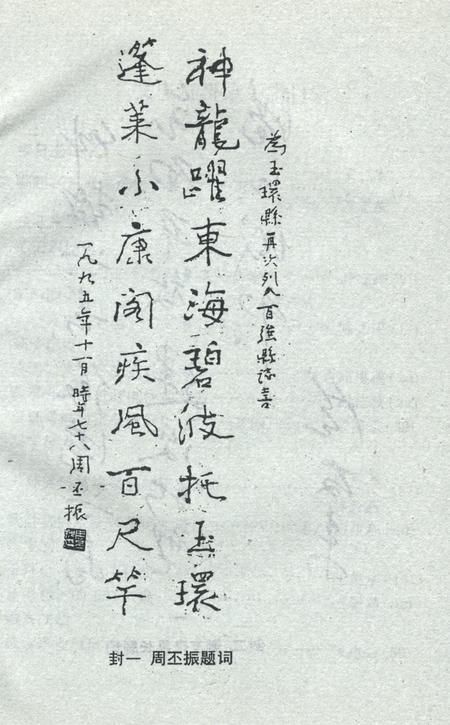 為玉環縣再次列入百強縣誌喜
神龍躍東海碧波托玉環
蓬萊小康閣疾風百尺竿
一九九五年十一月時年七十八周丕振
封一 周丕振题词